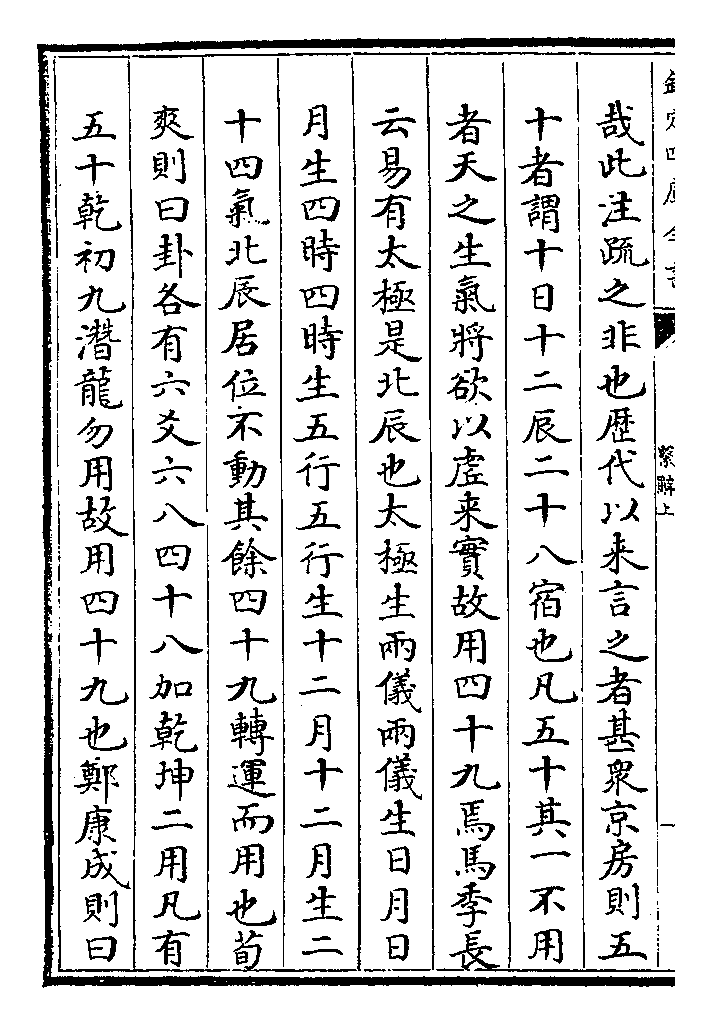 欽定四庫全書
繫辭上
一
哉此注疏之非也歴代以来言之者甚衆京房則五
十者謂十日十二辰二十八宿也凡五十其一不用
者天之生氣將欲以虚来實故用四十九焉馬季長
云易有太極是北辰也太極生兩儀兩儀生日月日
月生四時四時生五行五行生十二月十二月生二
十四氣北辰居位不動其餘四十九轉運而用也荀
爽則曰卦各有六爻六八四十八加乾坤二用凡有
五十乾初九潛龍勿用故用四十九也鄭康成則曰